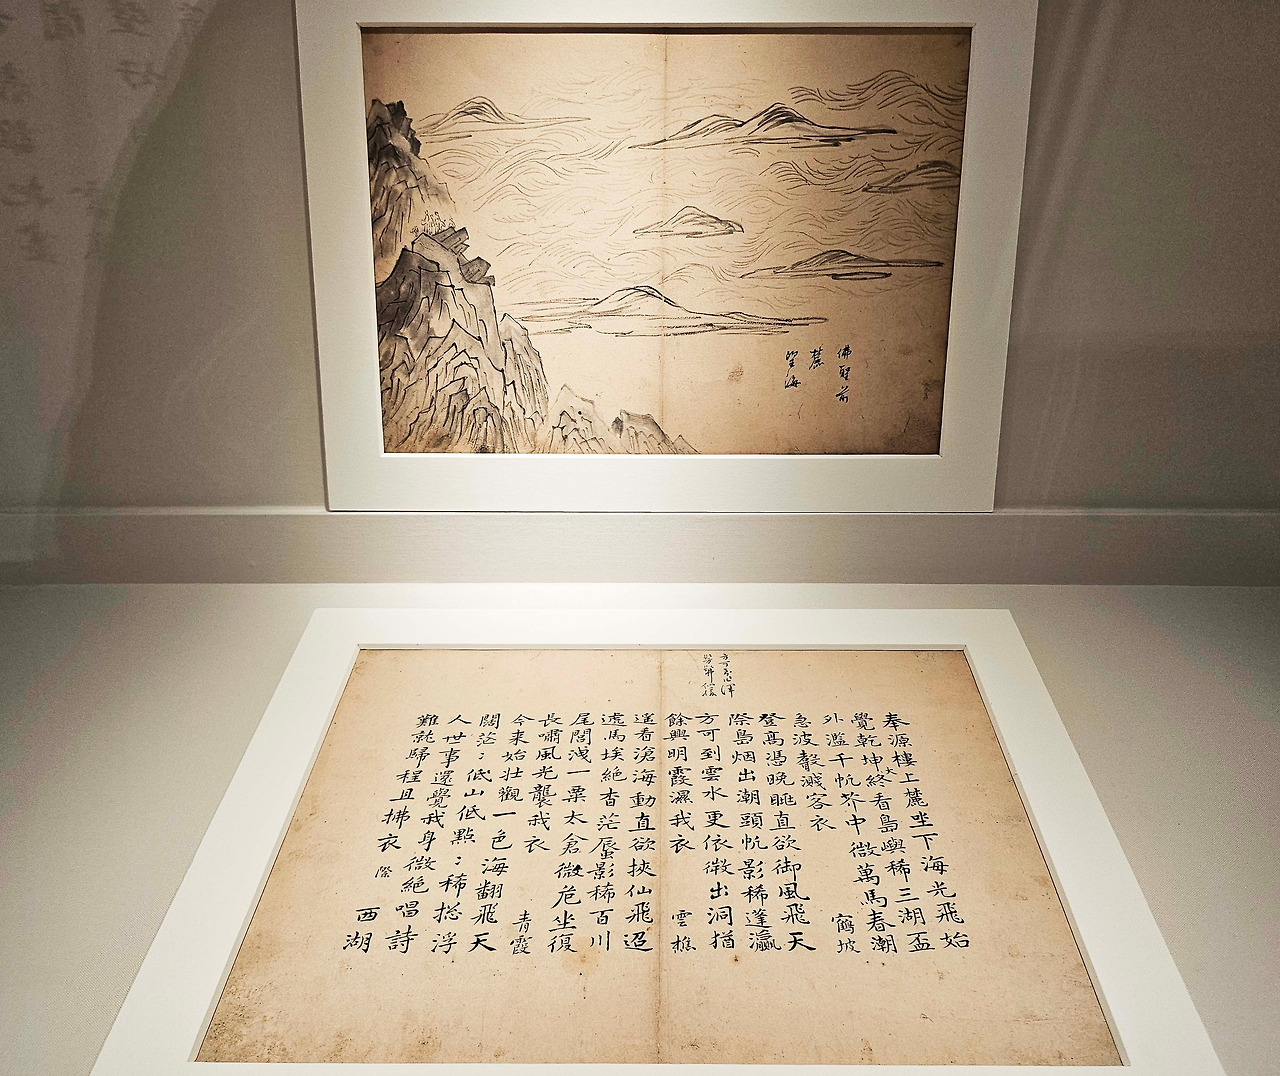 佛聖前
麓
望海
奉源樓上麓坐下海光飛始
覺乾坤大終看島嶼稀三湖盃
外濫千帆芥中微萬馬春潮
急波轂濺客衣 鶴坡
登高憑晚眺直欲御風飛天
際島烟出潮頭帆影稀蓬瀛
方可到雲水更依微出洞猶
餘興明霞濕我衣 雲樵
遙看滄海動直欲挾仙飛迢
遞馬埃絕杳茫蜃影稀百川
尾閭洩一粟太倉微危坐復
長嘯風光襲我衣 青霞
今来始壯觀一色海翻飛天
闊茫〻低山低點〻稀揔浮
人世事還覺我身微絕唱詩
難就歸程且拂衣 際 西湖